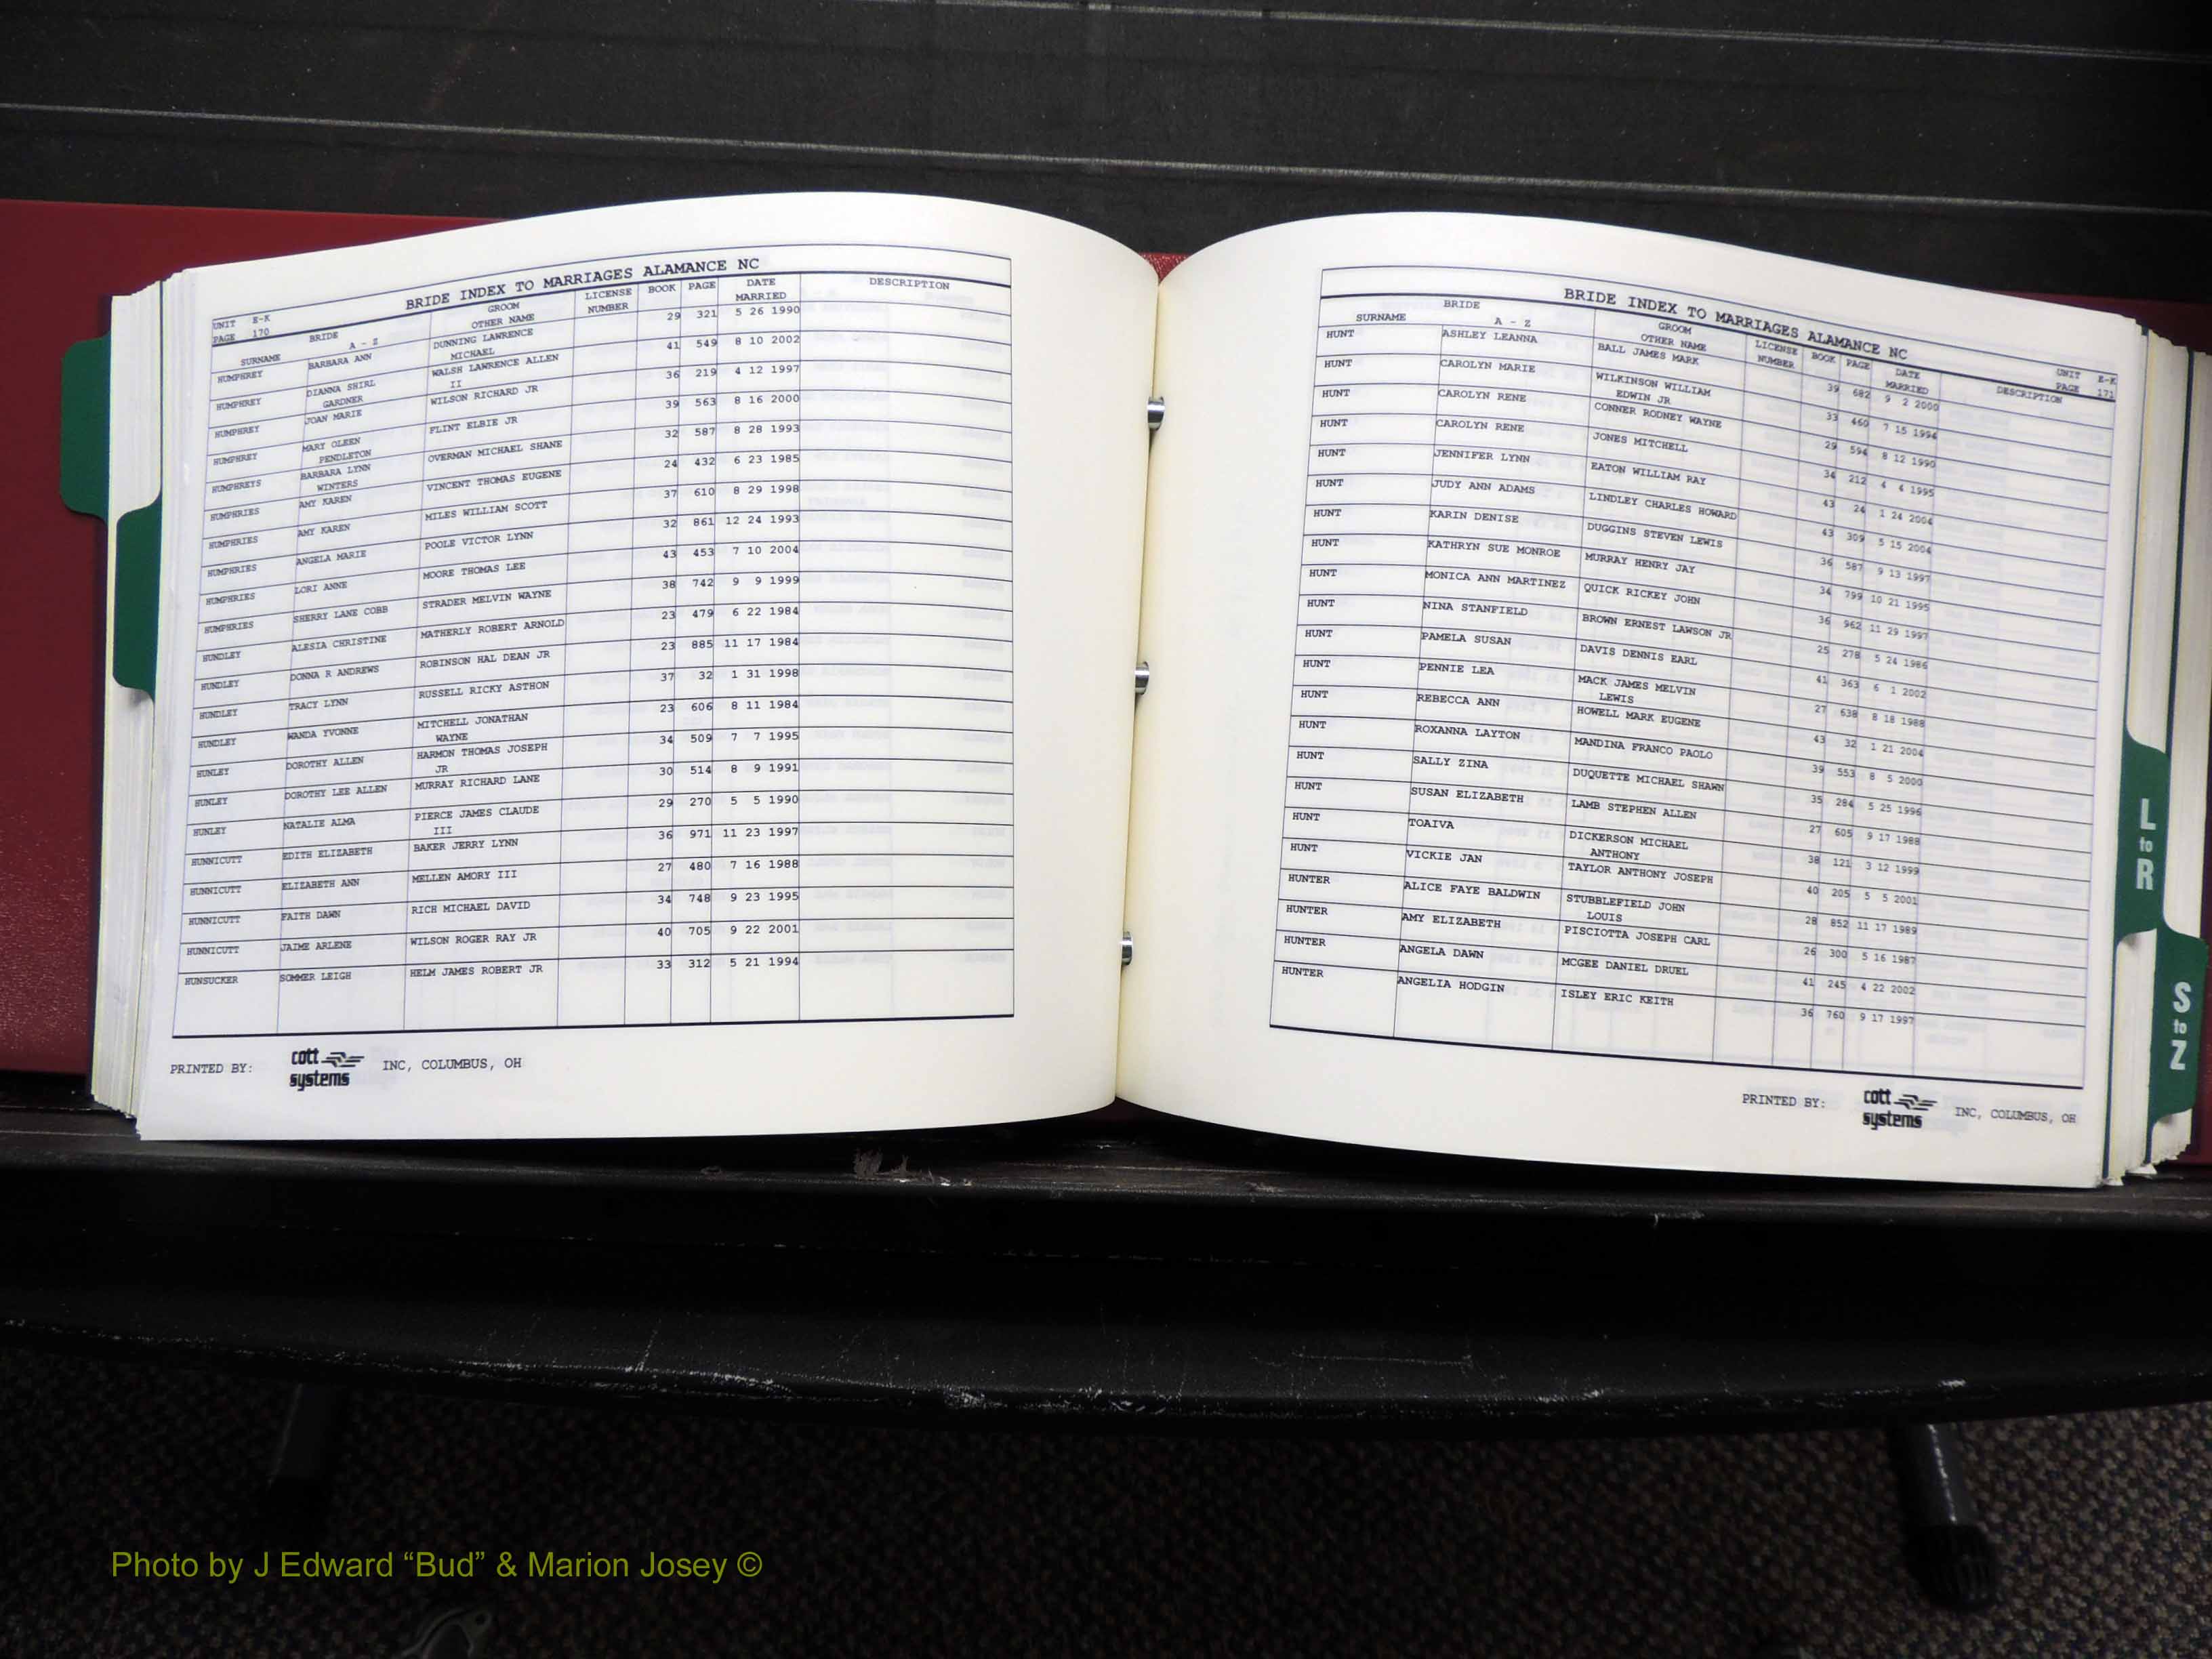 BRIDE INDEX TO MARRIAGES ALAMANCE NC
UNIT E-K
PAGE 170
SURNAME BRIDE A - Z GROOM OTHER NAME LICENSE NUMBER BOOK PAGE DATE MARRIED DESCRIPTION
HUMPHREY BARBARA ANN DUNNING LAWRENCE 29 321 5 26 1990
MICHAEL
HUMPHREY DIANNA SHIRL WALSH LAWRENCE ALLEN 41 549 8 10 2002
GARDNER II
HUMPHREY JOAN MARIE WILSON RICHARD JR 36 219 4 12 1997
HUMPHREY MARY OLEEN FLINT ELBIE JR 39 563 8 16 2000
PENDLETON
HUMPHREYS BARBARA LYNN OVERMAN MICHAEL SHANE 32 587 8 28 1993
WINTERS
HUMPHRIES AMY KAREN VINCENT THOMAS EUGENE 24 432 6 23 1985
HUMPHRIES AMY KAREN MILES WILLIAM SCOTT 37 610 8 29 1998
HUMPHRIES ANGELA MARIE POOLE VICTOR LYNN 32 861 12 24 1993
HUMPHRIES LORI ANNE MOORE THOMAS LEE 43 453 7 10 2004
HUMPHRIES SHERRY LANE COBB STRADER MELVIN WAYNE 38 742 9 9 1999
HUNDLEY ALESIA CHRISTINE MATHERLY ROBERT ARNOLD 23 479 6 22 1984
HUNDLEY DONNA R ANDREWS ROBINSON HAL DEAN JR 23 885 11 17 1984
HUNDLEY TRACY LYNN RUSSELL RICKY ASTHON 37 32 1 31 1998
HUNDLEY WANDA YVONNE MITCHELL JONATHAN 23 606 8 11 1984
WAYNE
HUNLEY DOROTHY ALLEN HARMON THOMAS JOSEPH 34 509 7 7 1995
JR
HUNLEY DOROTHY LEE ALLEN MURRAY RICHARD LANE 30 514 8 9 1991
HUNLEY NATALIE ALMA PIERCE JAMES CLAUDE 29 270 5 5 1990
III
HUNNICUTT EDITH ELIZABETH BAKER JERRY LYNN 36 971 11 23 1997
HUNNICUTT ELIZABETH ANN MELLEN AMORY III 27 480 7 16 1988
HUNNICUTT FAITH DAWN RICH MICHAEL DAVID 34 748 9 23 1995
HUNNICUTT JAIME ARLENE WILSON ROGER RAY JR 40 705 9 22 2001
HUNSUCKER SOMMER LEIGH HELM JAMES ROBERT JR 33 312 5 21 1994
PRINTED BY: cott systems INC, COLUMBUS, OH
BRIDE INDEX TO MARRIAGES ALAMANCE NC
UNIT E-K
PAGE 171
SURNAME BRIDE A - Z GROOM OTHER NAME LICENSE NUMBER BOOK PAGE DATE MARRIED DESCRIPTION
HUNT ASHLEY LEANNA BALL JAMES MARK 39 682 9 2 2000
HUNT CAROLYN MARIE WILKINSON WILLIAM 33 460 7 15 1994
EDWIN JR
HUNT CAROLYN RENE CONNER RODNEY WAYNE 29 594 8 12 1990
HUNT CAROLYN RENE JONES MITCHELL 34 212 4 4 1995
HUNT JENNIFER LYNN EATON WILLIAM RAY 43 24 1 24 2004
HUNT JUDY ANN ADAMS LINDLEY CHARLES HOWARD 43 309 5 15 2004
HUNT KARIN DENISE DUGGINS STEVEN LEWIS 36 587 9 13 1997
HUNT KATHRYN SUE MONROE MURRAY HENRY JAY 34 799 10 21 1995
HUNT MONICA ANN MARTINEZ QUICK RICKEY JOHN 36 962 11 29 1997
HUNT NINA STANFIELD BROWN ERNEST LAWSON JR 25 278 5 24 1986
HUNT PAMELA SUSAN DAVIS DENNIS EARL 41 363 6 1 2002
HUNT PENNIE LEA MACK JAMES MELVIN 27 638 8 18 1988
LEWIS
HUNT REBECCA ANN HOWELL MARK EUGENE 43 32 1 21 2004
HUNT ROXANNA LAYTON MANDINA FRANCO PAOLO 39 553 8 5 2000
HUNT SALLY ZINA DUQUETTE MICHAEL SHAWN 35 284 5 25 1996
HUNT SUSAN ELIZABETH LAMB STEPHEN ALLEN 27 605 9 17 1988
HUNT TOAIVA DICKERSON MICHAEL 38 121 3 12 1999
ANTHONY
HUNT VICKIE JAN TAYLOR ANTHONY JOSEPH 40 205 5 5 2001
HUNTER ALICE FAYE BALDWIN STUBBLEFIELD JOHN 28 852 11 17 1989
LOUIS
HUNTER AMY ELIZABETH PISCIOTTA JOSEPH CARL 26 300 5 16 1987
HUNTER ANGELA DAWN MCGEE DANIEL DRUEL 41 245 4 22 2002
HUNTER ANGELIA HODGIN ISLEY ERIC KEITH 36 760 9 17 1997
PRINTED BY: cott systems INC, COLUMBUS, OH
L to R
S to Z
Photo by J Edward “Bud” & Marion Josey ©